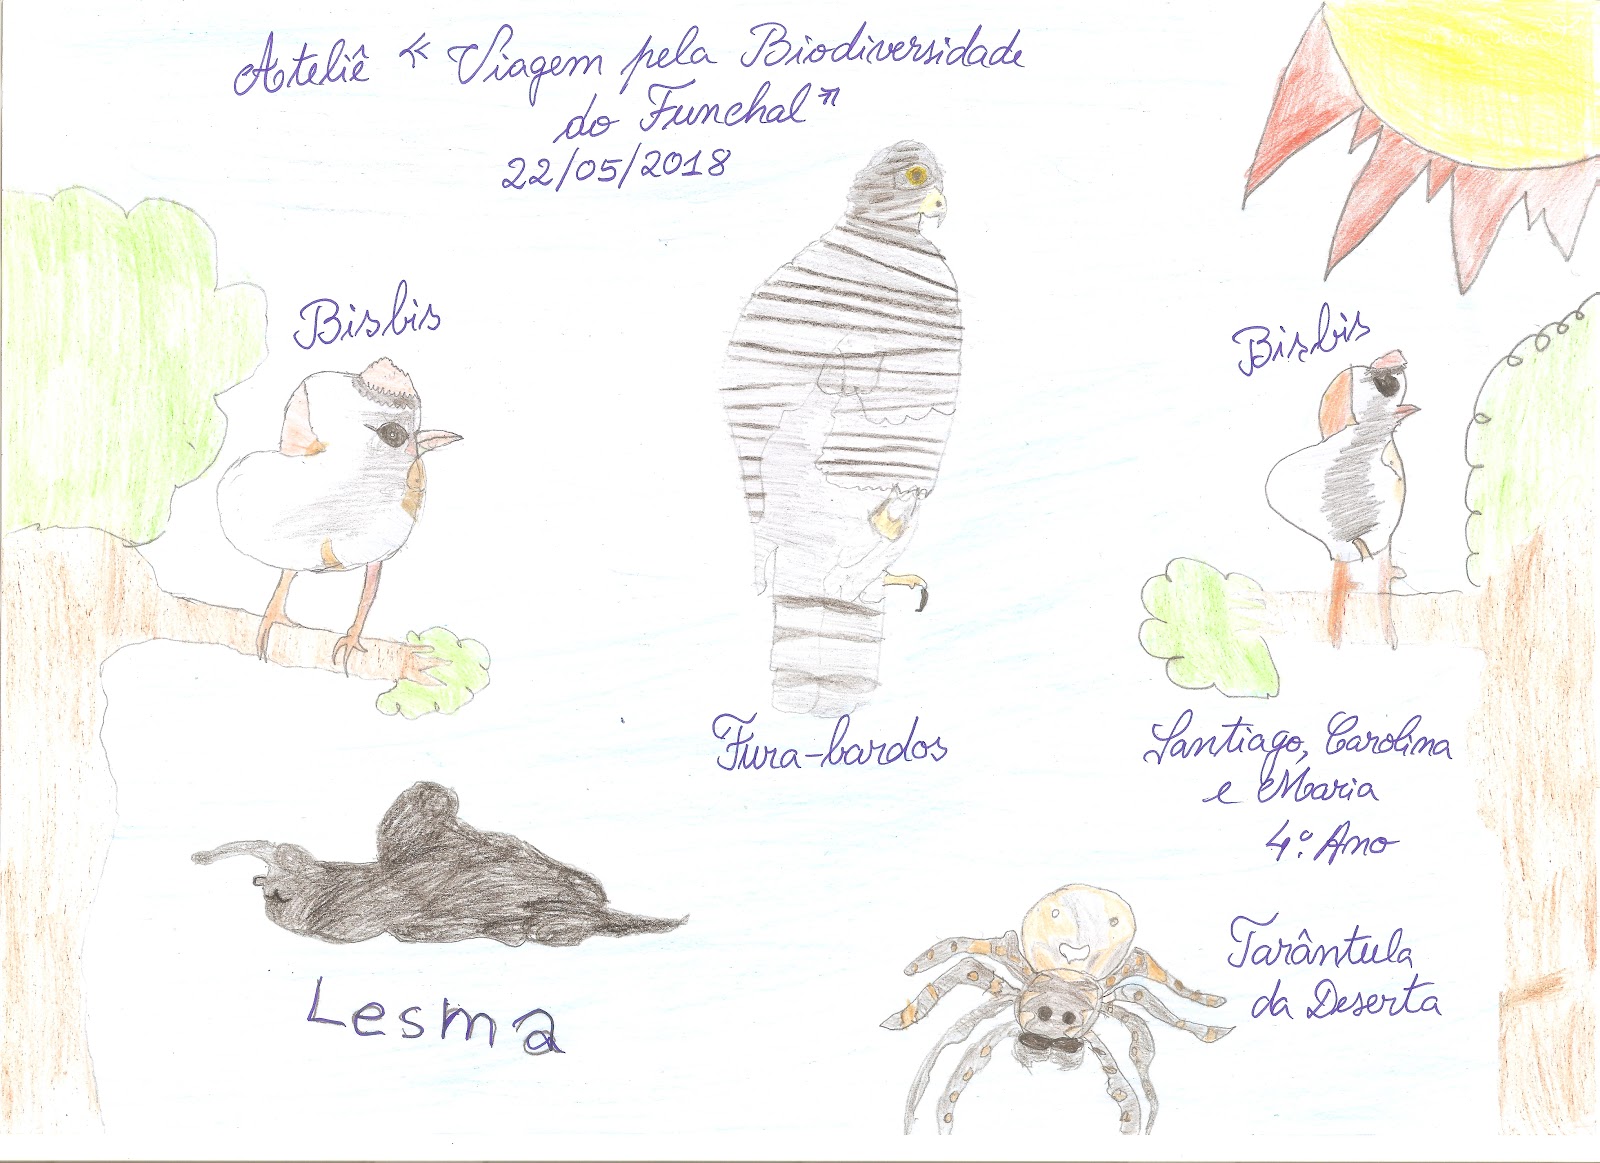 Ateliê « Viagem pela Biodiversidade
do Funchal"
22/05/2018
Bisbis
Bisbis
Fura-bardos
Santiago, Carolina
e Maria
4º. Ano
Lesma
Tarântula
da Deserta